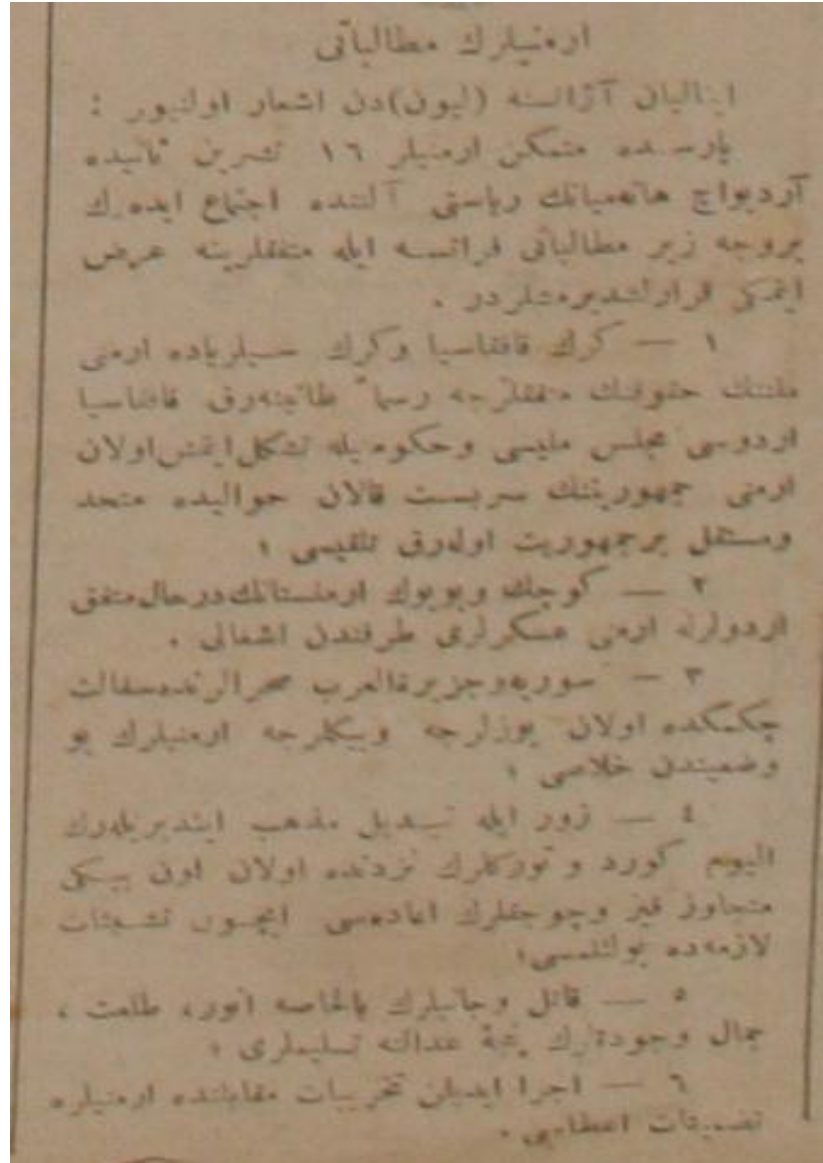 ارمنیلرك مطالباتی
ایتالیان آژانسنه (لیون)دن اشعار اولنیور :
پارسده متمكن ارمنیلر ١٦ تشرین ثانیده
آردیواچ هانمیانك ریاستی آلتنده اجتماع ایده‌رك
بروجه زیر مطالباتی فرانسه ایله متفقلرینه عرض
ایتمكی قرارلشدیرمشلردر .
١ — كرك قافقاسیا وكرك سیلریاده ارمنی
ملتنك حقوقنك متفقلرجه رسماً طانینه‌رق قافقاسیا
اردوسی مجلس ملیسی وحكومتیله تشكل ایتمش اولان
ارمنی جمهوریتنك سربست قالان حوالیده متحد
ومستقل برجمهوریت اوله‌رق تلقیسی ؛
٢ — كوچك وبویوك ارمنستانك درحال متفق
اردولرله ارمنی عسكرلری طرفندن اشغالی .
٣ — سوریه وجزیرةالعرب صحرالرنده سفالت
چكمكده اولان یوزلرجه وبیكلرجه ارمنیلرك بو
وضعیتدن خلاصی ؛
٤ — زور ایله تبدیل مذهب ایتدیریله‌رك
الیوم كورد و توركلرك نزدنده اولان اون بیكی
متجاوز قیز وچوجقلرك اعاده‌سی ایچون تشبثات
لازمه‌ده بولنلمسی؛
٥ — قاتل وجانیلرك بالخاصه انور، طلعت ،
جمال وجودتلرك پنجۀ عدالته تسلیملری ؛
٦ — اجرا ایدیلن تخریبات مقابلنده ارمنیلره
تضمینات اعطاسی .